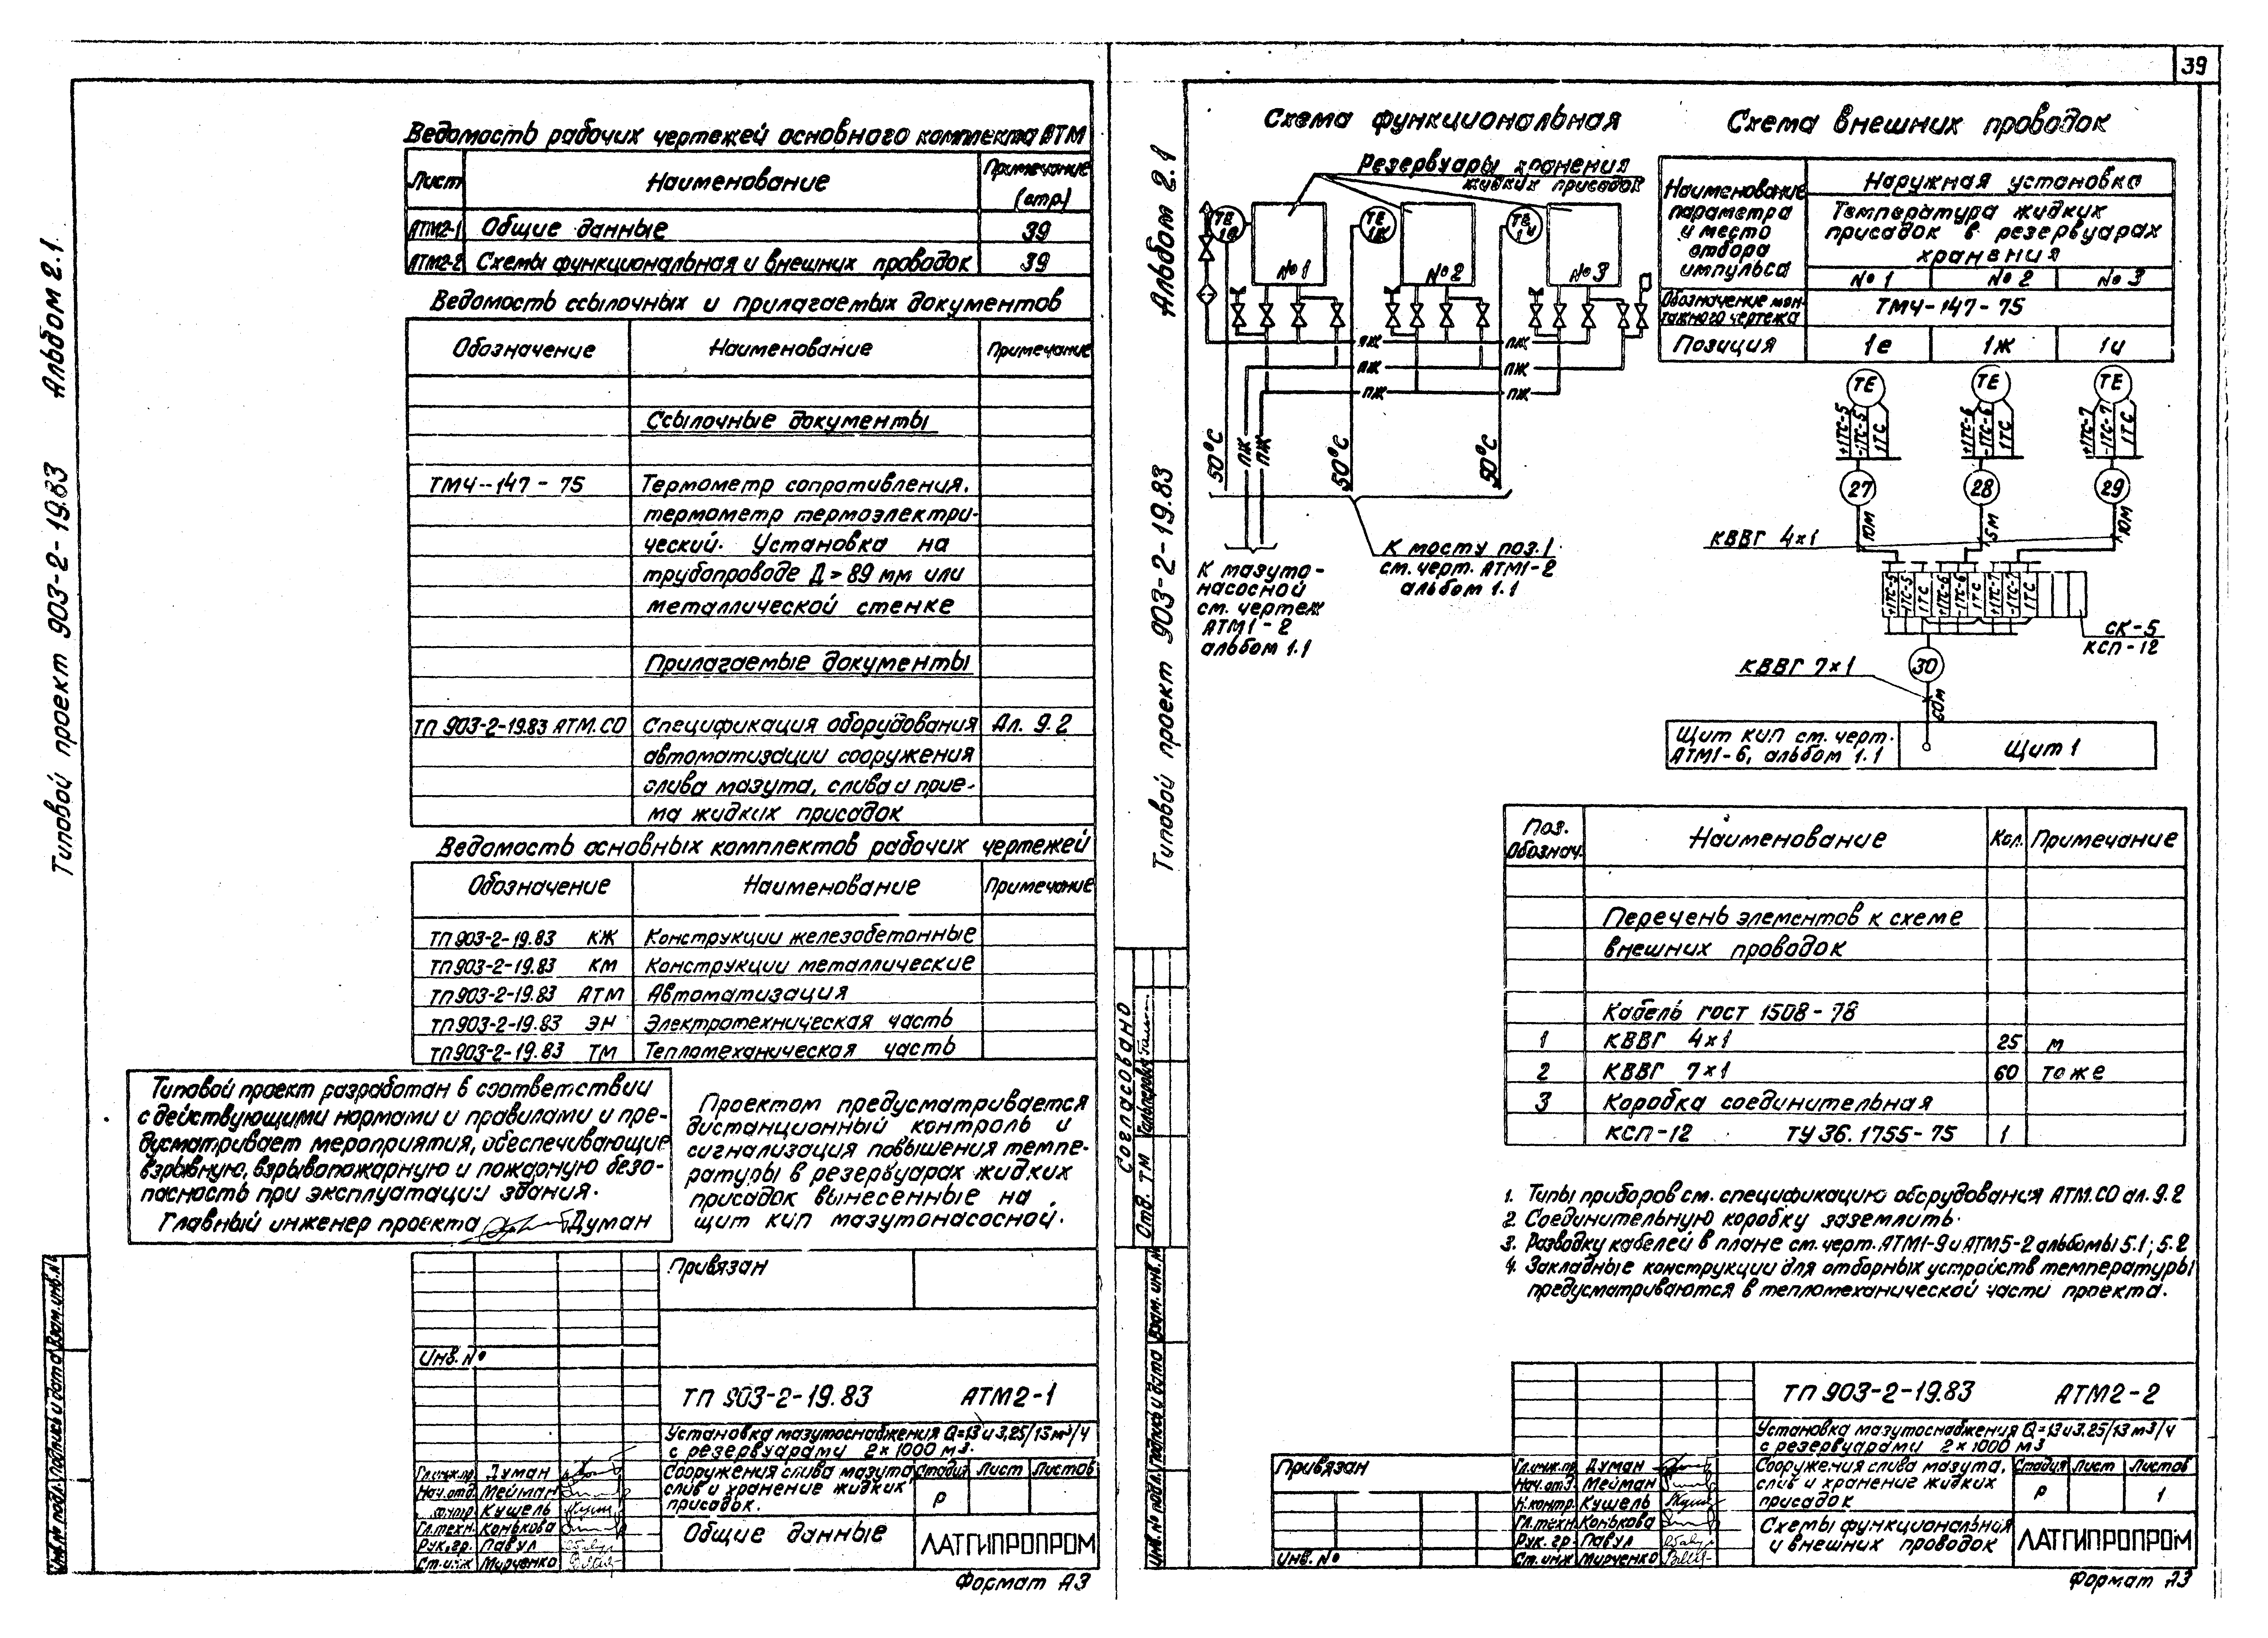 Типовой проект 903-2-19.83 Альбом 2.1
Ведомость рабочих чертежей основного комплекта АТМ
Лист Наименование Примечание (стр.)
АТМ2-1 Общие данные 39
АТМ2-2 Схемы функциональная и внешних проводок 39
Ведомость ссылочных и прилагаемых документов
Обозначение Наименование Примечание
Ссылочные документы
ТМЧ-147-75 Термометр сопротивления.
термометр термоэлектри-
ческий. Установка на
трубопроводе Д > 89 мм или
металлической стенке
Прилагаемые документы
ТП 903-2-19.83 АТМ.СО Спецификация оборудования Ал. 9.2
автоматизации сооружения
слива мазута, слива и прие-
ма жидких присадок
Ведомость основных комплектов рабочих чертежей
Обозначение Наименование Примечание
ТП 903-2-19.83 КЖ Конструкции железобетонные
ТП 903-2-19.83 КМ Конструкции металлические
ТП 903-2-19.83 АТМ Автоматизация
ТП 903-2-19.83 ЭН Электротехническая часть
ТП 903-2-19.83 ТМ Тепломеханическая часть
Типовой проект разработан в соответствии
с действующими нормами и правилами и пре-
дусматривает мероприятия, обеспечивающие
взрывную, взрывопожарную и пожарную безо-
пасность при эксплуатации здания.
Главный инженер проекта Думан
Проектом предусматривается
дистанционный контроль и
сигнализация повышения темпе-
ратуры в резервуарах жидких
присадок вынесенные на
щит КИП мазутонасосной.
Привязан
Инв. №
ТП 903-2-19.83 АТМ2-1
Установка мазутоснабжения Q=13 и 3,25/13 м³/ч
с резервуарами 2×1000 м3.
Гл.инж.пр. Думан
Нач.отд. Мейман
контр Кушель
Гл.техн. Конькова
Рук.гр. Павул
Ст.инж Мирченко
Сооружения слива мазута,
слив и хранение жидких
присадок.
Стадия Лист Листов
Р
Общие данные
ЛАТГИПРОПРОМ
Формат А3
Инв.№ подл. Подпись и дата Взам.инв.№
39
Типовой проект 903-2-19.83 Альбом 2.1
Схема функциональная
Резервуары хранения
жидких присадок
ТЕ 1е
ТЕ 1ж
ТЕ 1и
№1
№2
№3
ПЖ ПЖ
ПЖ ПЖ
ПЖ ПЖ
50°С ПЖ ПЖ 50°С 50°С
К мазуто-
насосной
см. чертеж
АТМ1-2
альбом 1.1
К мосту поз.1
см. черт. АТМ1-2
альбом 1.1
Схема внешних проводок
Наименование
параметра
и место
отбора
импульса
Наружная установка
Температура жидких
присадок в резервуарах
хранения
№1 №2 №3
Обозначение мон-
тажного чертежа
ТМЧ-147-75
Позиция 1е 1ж 1и
ТЕ ТЕ ТЕ
+1ТС-5 -1ТС-5 1ТС +1ТС-6 -1ТС-6 1ТС +1ТС-7 -1ТС-7 1ТС
27 28 29
10м 5м 10м
КВВГ 4×1
+1ТС-5 -1ТС-5 1ТС +1ТС-6 -1ТС-6 1ТС +1ТС-7 -1ТС-7 1ТС
СК-5
КСП-12
30
КВВГ 7×1
60м
Щит КИП см. черт.
АТМ1-6, альбом 1.1
Щит 1
Поз. Обознач. Наименование Кол. Примечание
Перечень элементов к схеме
внешних проводок
Кабель ГОСТ 1508-78
1 КВВГ 4×1 25 м
2 КВВГ 7×1 60 тоже
3 Коробка соединительная
КСП-12 ТУ 36.1755-75 1
1. Типы приборов см. спецификацию оборудования АТМ.СО ал. 9.2
2. Соединительную коробку заземлить.
3. Разводку кабелей в плане см. черт. АТМ1-9 и АТМ5-2 альбомы 5.1; 5.2
4. Закладные конструкции для отборных устройств температуры
предусматриваются в тепломеханической части проекта.
Согласовано
Отд. ТМ
Инв.№ подл. Подпись и дата Взам. инв.№
Привязан
Инв. №
ТП 903-2-19.83 АТМ2-2
Установка мазутоснабжения Q=13 и 3.25/13 м3/ч
с резервуарами 2×1000 м3
Гл.инж.пр. Думан
Нач.отд. Мейман
Н.контр. Кушель
Гл.техн. Конькова
Рук. гр. Павул
Ст.инж Мирченко
Сооружения слива мазута,
слив и хранение жидких
присадок
Стадия Лист Листов
Р 1
Схемы функциональная
и внешних проводок
ЛАТГИПРОПРОМ
Формат А3